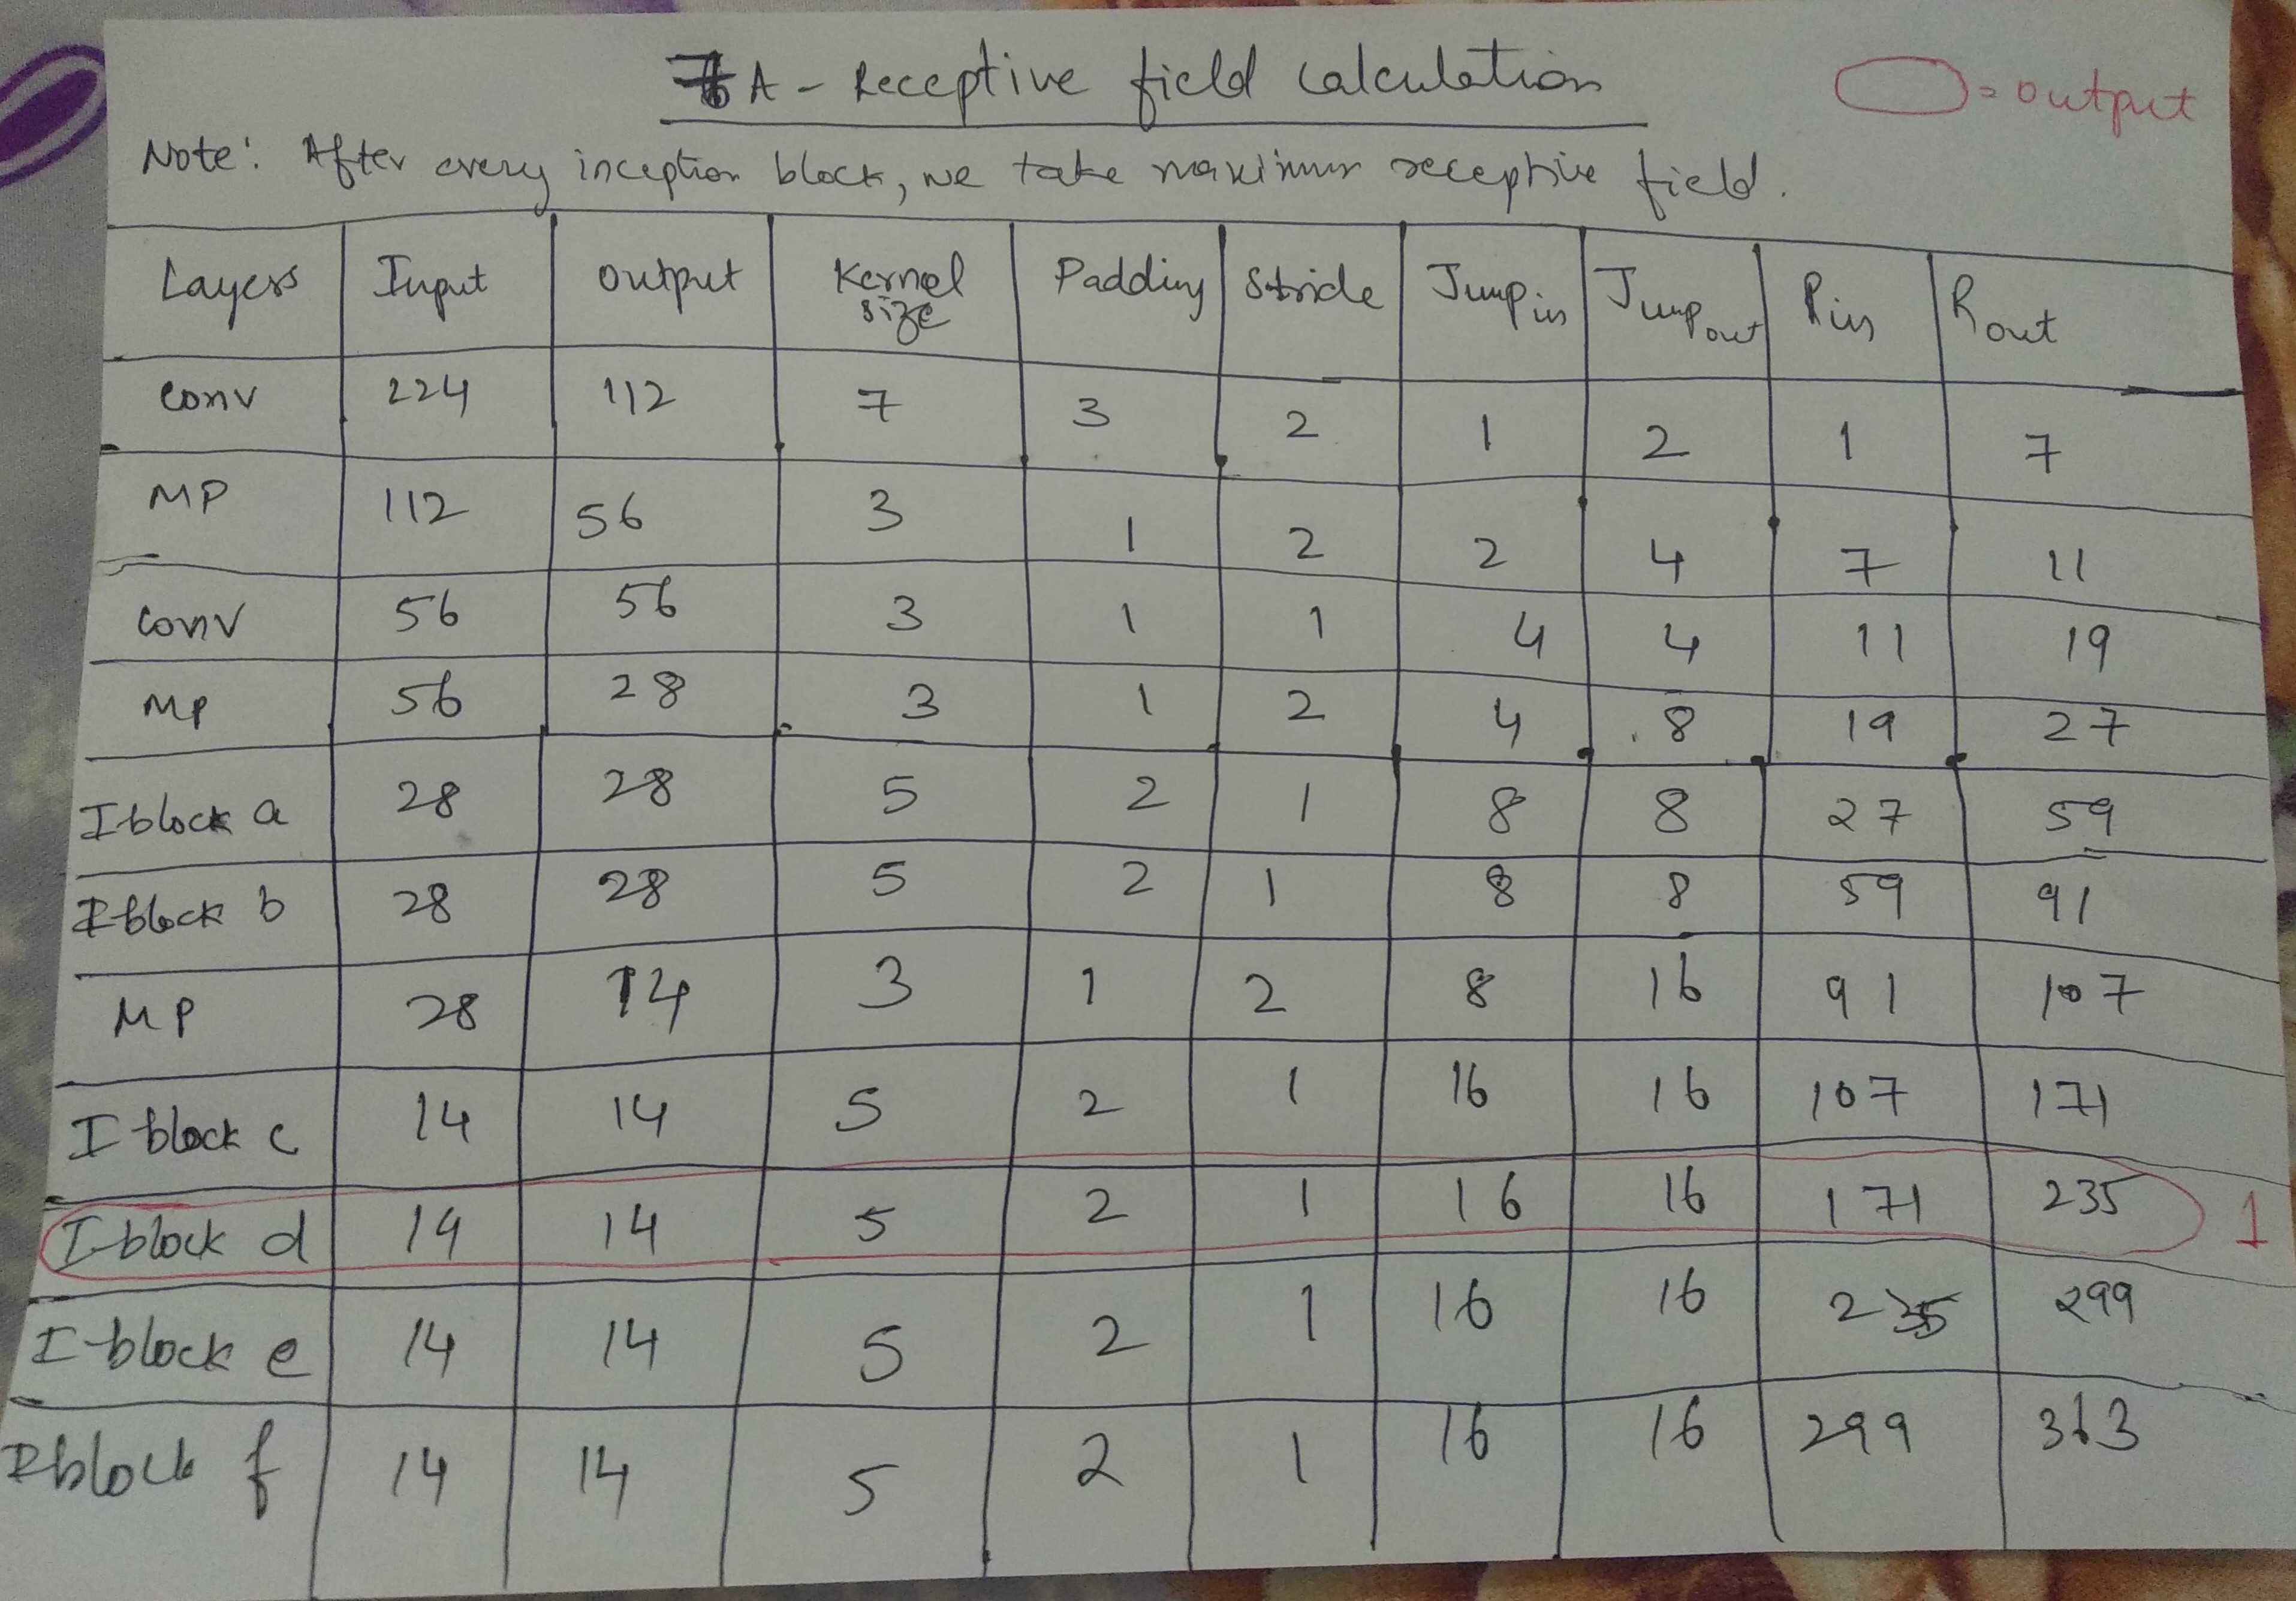 7A - Receptive field calculation
= output
Note: After every inception block, we take maximum receptive field.
Layers Input output Kernel size Padding Stride Jump in Jump out Rin Rout
conv 224 112 7 3 2 1 2 1 7
MP 112 56 3 1 2 2 4 7 11
conv 56 56 3 1 1 4 4 11 19
MP 56 28 3 1 2 4 8 19 27
I-block a 28 28 5 2 1 8 8 27 59
I-block b 28 28 5 2 1 8 8 59 91
MP 28 14 3 1 2 8 16 91 107
I-block c 14 14 5 2 1 16 16 107 171
I-block d 14 14 5 2 1 16 16 171 235 1
I-block e 14 14 5 2 1 16 16 235 299
I-block f 14 14 5 2 1 16 16 299 363